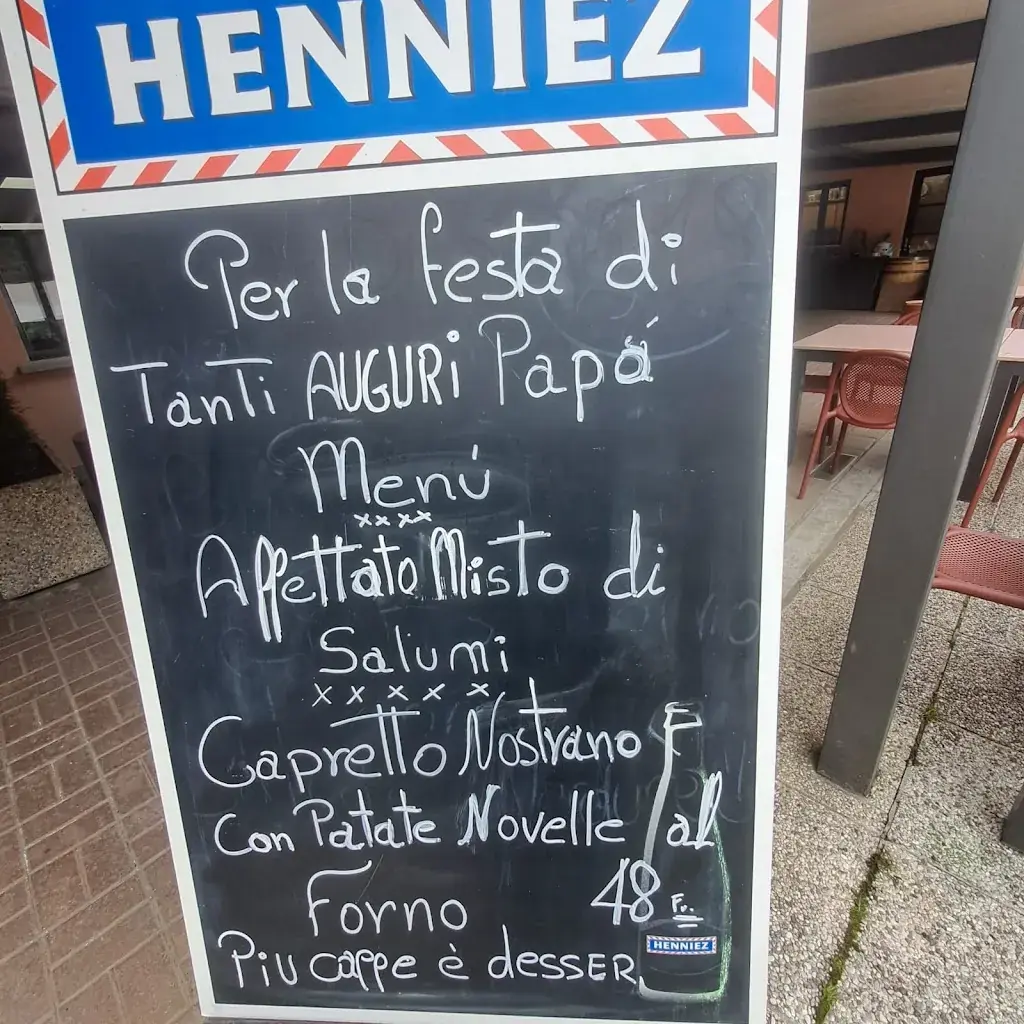 HENNIEZ
Per la festa di
Tanti AUGURi Papá
Menú
xxxx
Affettato Misto di
Salumi
x x x x x
Capretto Nostrano
Con Patate Novelle al
Forno 48 Fr.
HENNIEZ
Piu caffe è desser